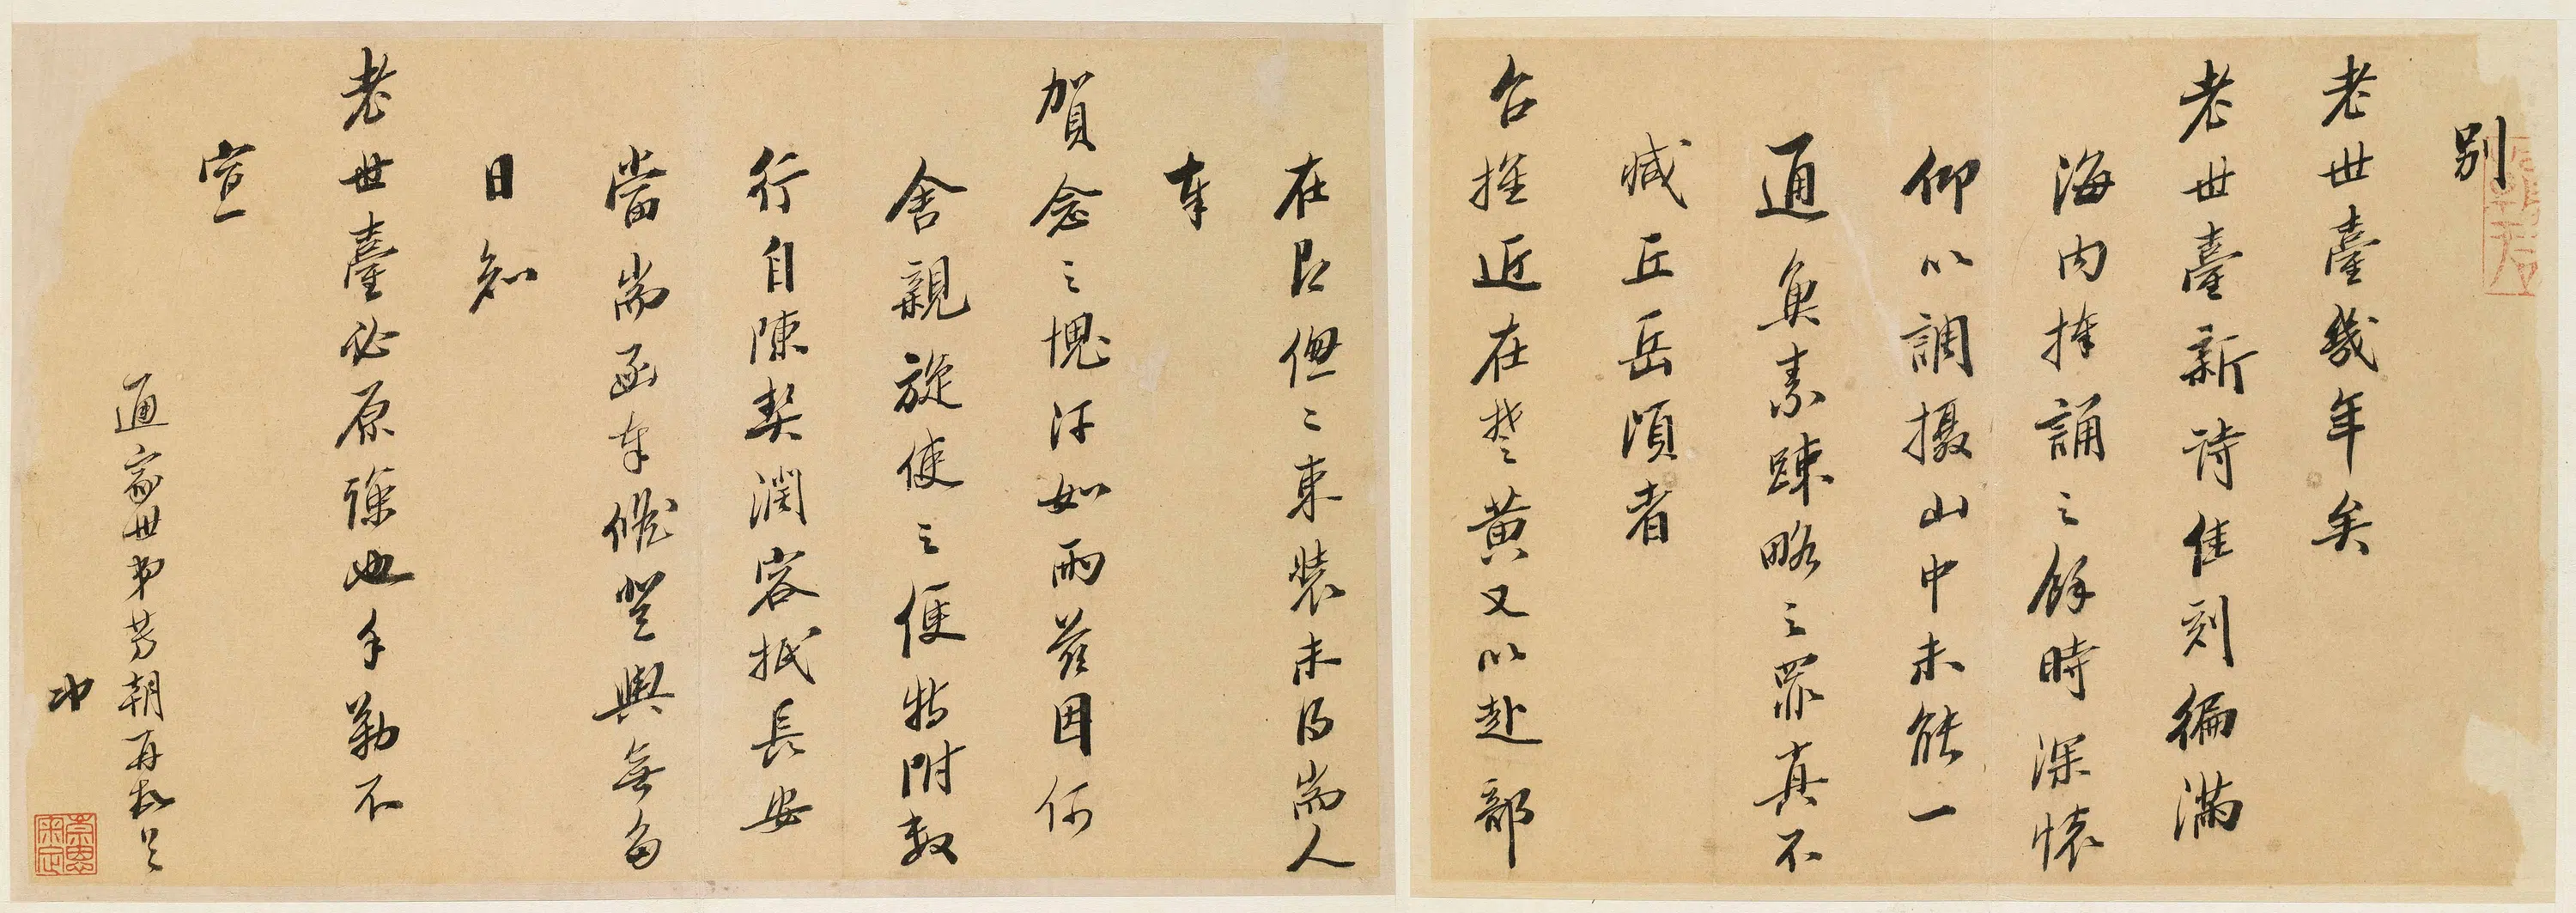 別
老世臺幾年矣
老世臺新詩佳刻徧滿
海內捧誦之餘時深懷
仰以調攝山中未能一
通魚素踈略之罪真不
減丘岳頃者
台擢近在楚黃又以赴部
在即偬〻束裝未得耑人
奉
賀念之愧汗如雨茲因仔
舍親旋使之便特附數
行自陳契濶容抵長安
當耑函奉候晤與無多
日知
老世臺必原諒也手勒不
宣
通家世弟芳朝再頓首
冲